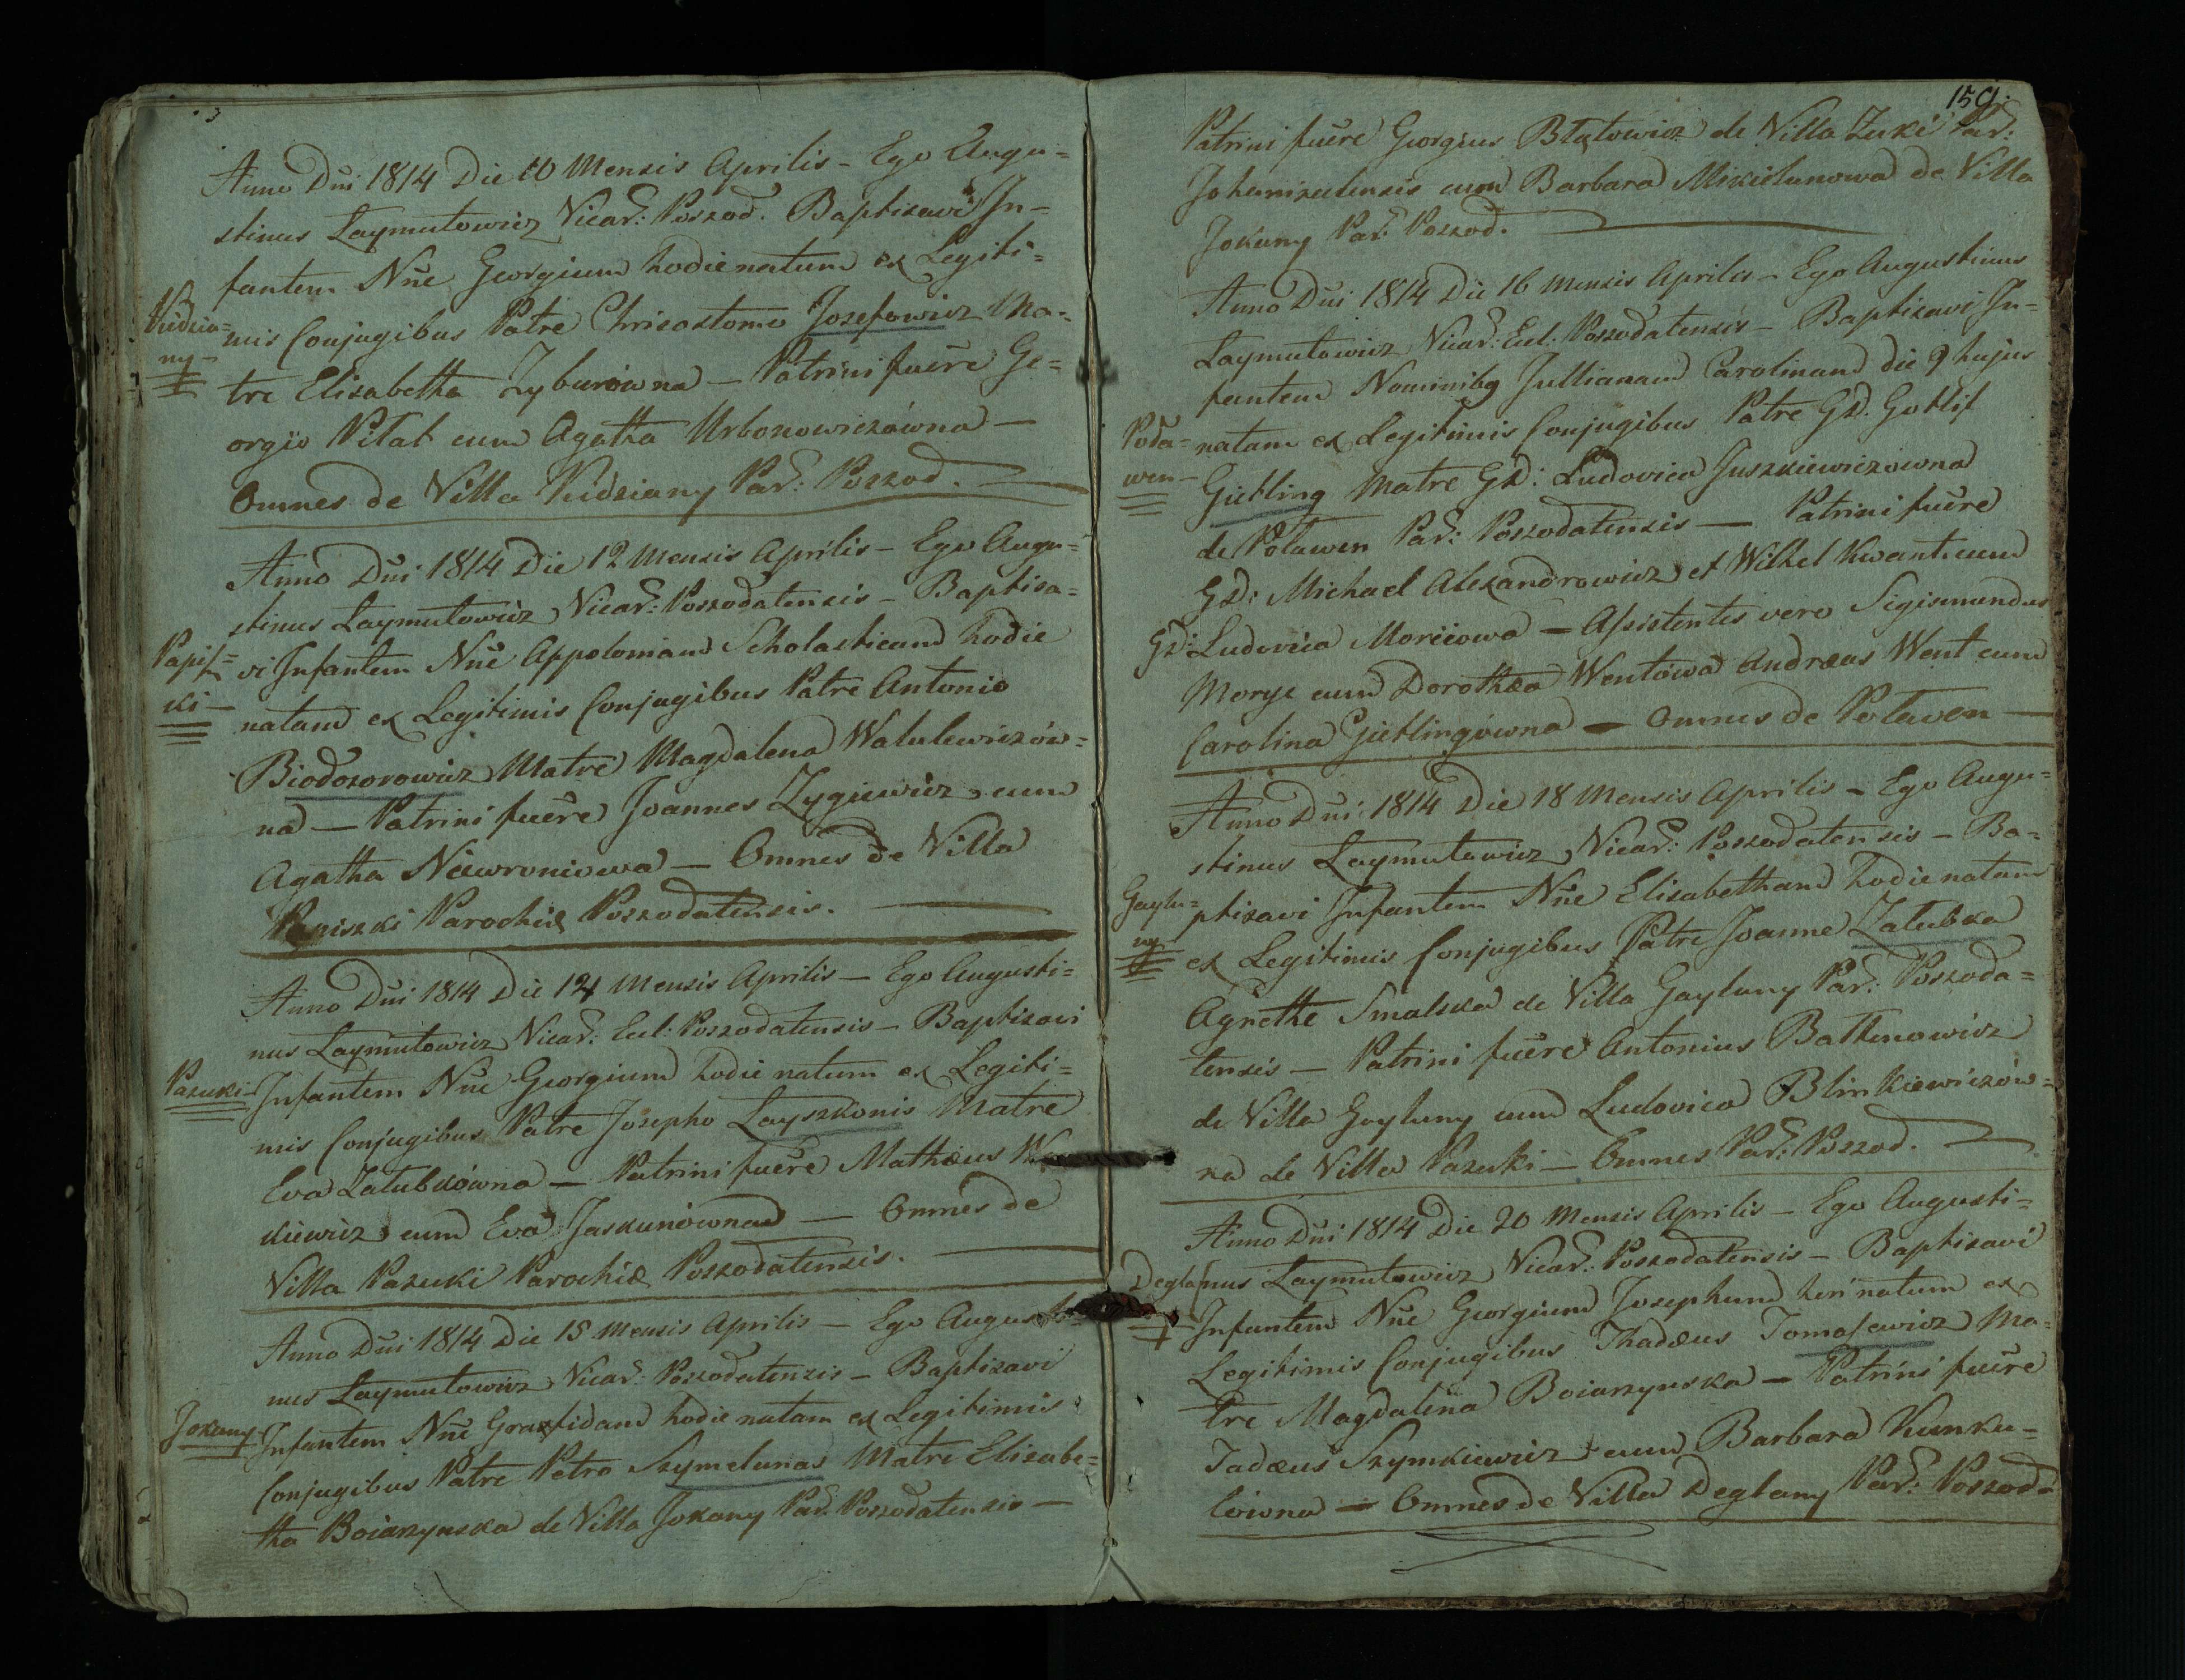 Anno Dni 1814 Die 10 Mensis Aprilis - Ego Augu=
stinus Laymutowicz Vicar: Poszod. Baptisavi In=
fantem Nne Georgium hodie natum ex Legiti=
Kudzia=
ny -
mis Conjugibus Patre Chrisostomo Josefowicz Ma=
tre Elisabetha Zyburowna - Patrini fuere Ge=
orgio Pilat cum Agatha Urbonowiczowna -
Omnes de Villa Kudziany Par: Poszod.
Anno Dni 1814 Die 12 Mensis Aprilis - Ego Augu=
stinus Laymutowicz Vicar: Poszodatensis - Baptisa=
Papiß=
ki -
vi Infantem Nne Appoloniam Scholasticam hodie
natam ex Legitimis Conjugibus Patre Antonio
Biodozorowicz Matre Magdalena Walulewiczów=
na - Patrini fuere Joannes Zygiewicz cum
Agatha Niewroniowa - Omnes de Villa
Papiszki Parochiæ Poszodatensis.
Anno Dni 1814 Die 14 Mensis Aprilis - Ego Augusti=
nus Laymutowicz Vicar: Eccl: Poszodatensis - Baptisavi
Pazuki -
Infantem Nne Georgium hodie natum ex Legiti=
mis Conjugibus Patre Josepho Layszkonis Matre
Eva Zatubkówna - Patrini fuere Mathæus
kiewicz cum Eva Jaskunownad - Omnes de
Villa Pazuki Parochiæ Poszodatensis.
Anno Dni 1814 Die 15 Mensis Aprilis - Ego Augusti=
nus Laymutowicz Vicar: Poszodatensis - Baptisavi
Jokany
Infantem Nne hodie natam ex Legitimis
Conjugibus Patre Petro Szymelunas Matre Elisabe=
tha Boiarzynska de Villa Jokany Par. Poszodatensis -
159.
Patrini fuere Georgius Btątowicz de Villa Zuki Par:
Johaniszelensis cum Barbara Mikielunowa de Villa
Jokany Par: Poszod.
Anno Dni 1814 Die 16 Mensis Aprilis - Ego Augustinus
Laymutowicz Vicar: Eccl: Poszodatensis - Baptisavi In=
fantem Nominibq Jullianam Carolinam die 9 hujus
Pota=
wen -
natam ex Legitimis Conjugibus Patre GD. Gotlif
Gietling Matre GD: Ludovica Juszkiewiczowna
de Potawen Par: Poszodatensis - Patrini fuere
GD: Michael Alexandrowicz et Wilhel Kwant cum
GD: Ludovica Moriiowa - Assistentes vero Sigismundus
Moryc cum Dorothæa Wentowa Andræas Went cum
Carolina Gietlingówna - Omnes de Potawen -
Anno Dni 1814 Die 18 Mensis Aprilis - Ego Augu=
stinus Laymutowicz Vicar: Poszodatensis - Ba=
Gaylu=
ny
ptisavi Infantem Nne Elisabetham hodie natam
ex Legitimis Conjugibus Patre Joanne Zatubka
Agnethe Smalska de Villa Gayluny Par: Poszoda=
tensis - Patrini fuere Antonius Baltenowicz
de Villa Gayluny cum Ludovica Blinkiewiczów=
na de Villa Pazuki - Omnes Par: Poszod.
Anno Dni 1814 Die 20 Mensis Aprilis - Ego Augusti=
nus Laymutowicz Vicar: Poszodatensis - Baptisavi
Infantem Nne Georgium Josephum heri natum ex
Legitimis Conjugibus Thadæus Tomaſewicz Ma=
tre Magdalena Boiarzynska - Patrini fuere
Tadæus Szymkiewicz cum Barbara Kunku=
lówna - Omnes de Villa Deglany Par: Poszod